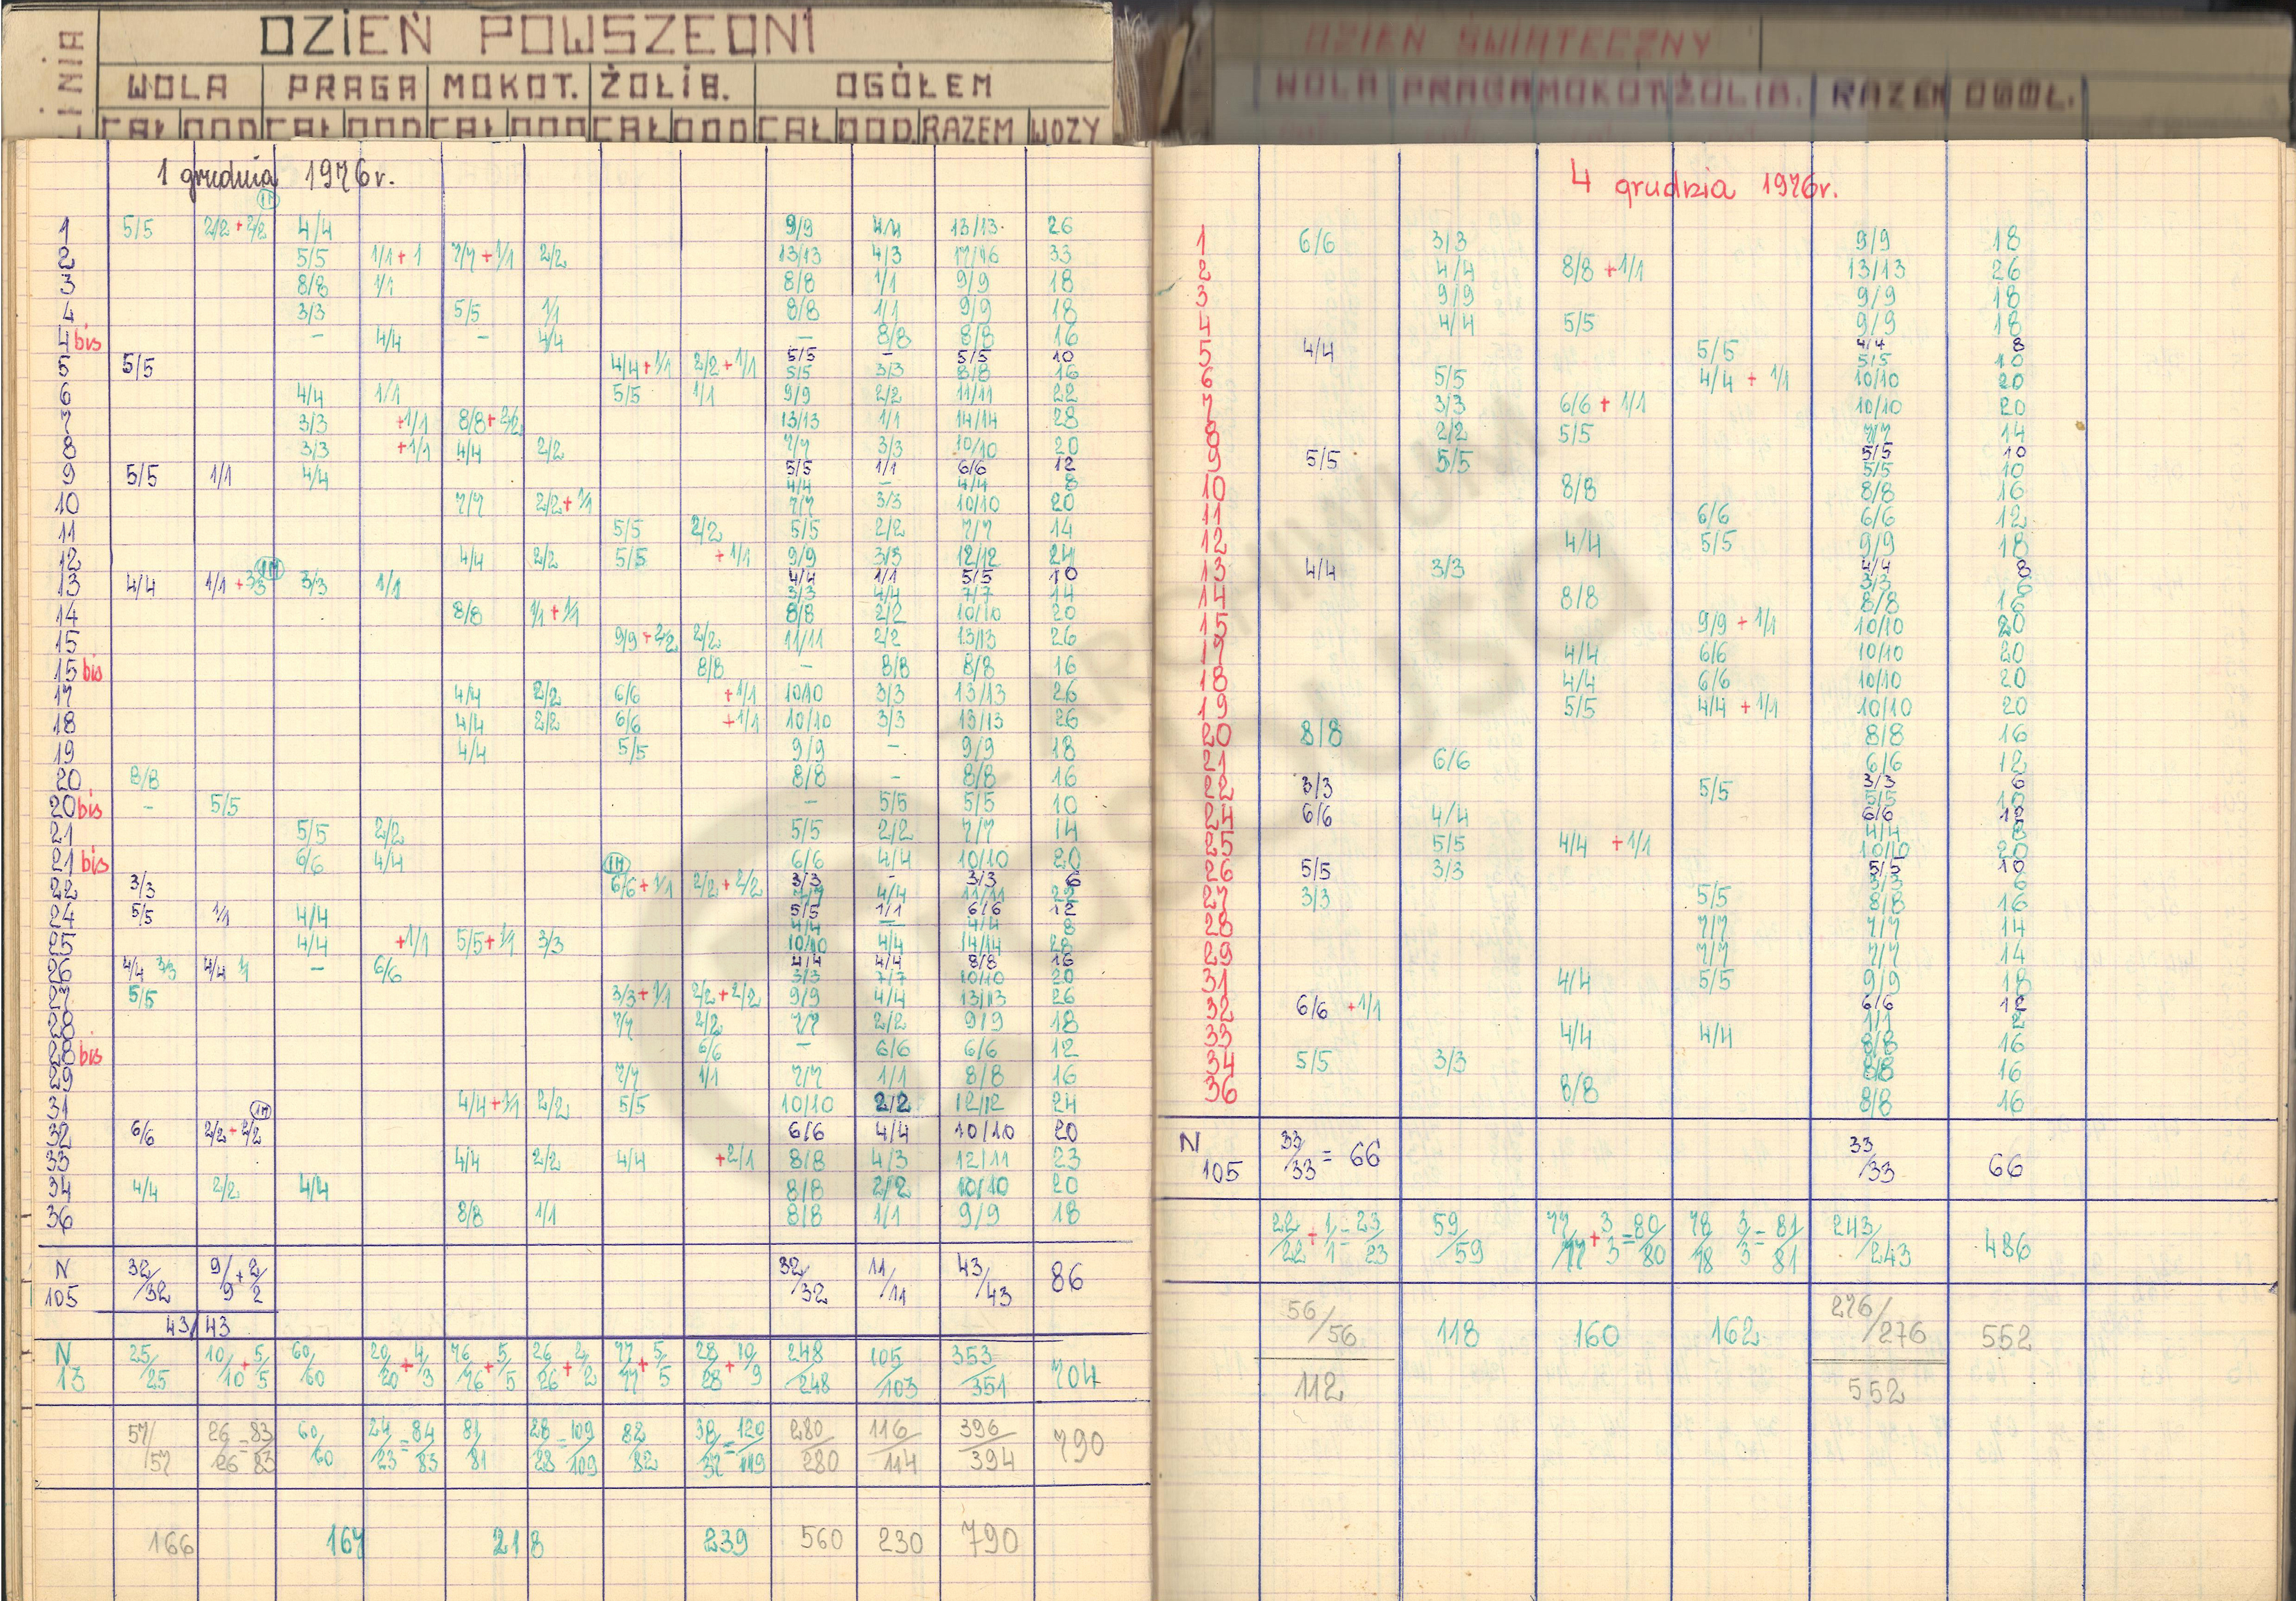 LINIA
DZIEŃ POWSZEDNI
WOLA PRAGA MOKOT. ŻOLIB. OGÓŁEM
CAŁ DOD CAŁ DOD CAŁ DOD CAŁ DOD CAŁ DOD RAZEM WOZY
1 grudnia 1976r.
1 5/5 2/2+2/2 4/4 9/9 4/4 13/13 26
2 5/5 1/1+1 7/7+1/1 2/2 13/13 4/3 17/16 33
3 8/8 1/1 8/8 1/1 9/9 18
4 3/3 5/5 1/1 8/8 1/1 9/9 18
4 bis - 4/4 - 4/4 - 8/8 8/8 16
5 5/5 4/4+1/1 2/2+1/1 5/5 - 5/5 10
5/5 3/3 8/8 16
6 4/4 1/1 5/5 1/1 9/9 2/2 11/11 22
7 3/3 +1/1 8/8+2/2 13/13 1/1 14/14 28
8 3/3 +1/1 4/4 2/2 7/7 3/3 10/10 20
9 5/5 1/1 4/4 5/5 1/1 6/6 12
4/4 - 4/4 8
10 7/7 2/2+1/1 7/7 3/3 10/10 20
11 5/5 2/2 5/5 2/2 7/7 14
12 4/4 2/2 5/5 +1/1 9/9 3/3 12/12 24
13 4/4 1/1+3/3 3/3 1/1 4/4 1/1 5/5 10
3/3 4/4 7/7 14
14 8/8 1/1+1/1 8/8 2/2 10/10 20
15 9/9+2/2 2/2 11/11 2/2 13/13 26
15 bis 8/8 - 8/8 8/8 16
17 4/4 2/2 6/6 +1/1 10/10 3/3 13/13 26
18 4/4 2/2 6/6 +1/1 10/10 3/3 13/13 26
19 4/4 5/5 9/9 - 9/9 18
20 8/8 8/8 - 8/8 16
20 bis - 5/5 - 5/5 5/5 10
21 5/5 2/2 5/5 2/2 7/7 14
21 bis 6/6 4/4 6/6 4/4 10/10 20
22 3/3 6/6+1/1 2/2+2/2 3/3 - 3/3 6
7/7 4/4 11/11 22
24 5/5 1/1 4/4 5/5 1/1 6/6 12
4/4 - 4/4 8
25 4/4 +1/1 5/5+1/1 3/3 10/10 4/4 14/14 28
26 4/4 3/3 4/4 1/1 - 6/6 4/4 4/4 8/8 16
3/3 7/7 10/10 20
27 5/5 3/3+1/1 2/2+2/2 9/9 4/4 13/13 26
28 7/7 2/2 7/7 2/2 9/9 18
28 bis 6/6 - 6/6 6/6 12
29 7/7 1/1 7/7 1/1 8/8 16
31 4/4+1/1 2/2 5/5 10/10 2/2 12/12 24
32 6/6 2/2+2/2 6/6 4/4 10/10 20
33 4/4 2/2 4/4 +2/1 8/8 4/3 12/11 23
34 4/4 2/2 4/4 8/8 2/2 10/10 20
36 8/8 1/1 8/8 1/1 9/9 18
N 105 32/32 9/9+2/2 32/32 11/11 43/43 86
43/43
N 13 25/25 10/10+5/5 60/60 20/20+4/3 76/76+5/5 26/26+2/2 77/77+5/5 28/28+10/9 248/248 105/103 353/351 704
57/57 26/26=83/83 60/60 24/23=84/83 81/81 28/28=109/109 82/82 38/37=120/119 280/280 116/114 396/394 790
166 167 218 239 560 230 790
DZIEŃ ŚWIĄTECZNY
WOLA PRAGA MOKOT ŻOLIB. RAZEM OGÓŁ.
4 grudzia 1976r.
1 6/6 3/3 9/9 18
2 4/4 8/8+1/1 13/13 26
3 9/9 9/9 18
4 4/4 5/5 9/9 18
5 4/4 5/5 4/4 8
5/5 10
6 5/5 4/4+1/1 10/10 20
7 3/3 6/6+1/1 10/10 20
8 2/2 5/5 7/7 14
9 5/5 5/5 5/5 10
5/5 10
10 8/8 8/8 16
11 6/6 6/6 12
12 4/4 5/5 9/9 18
13 4/4 3/3 4/4 8
3/3 6
14 8/8 8/8 16
15 9/9+1/1 10/10 20
17 4/4 6/6 10/10 20
18 4/4 6/6 10/10 20
19 5/5 4/4+1/1 10/10 20
20 8/8 8/8 16
21 6/6 6/6 12
22 3/3 5/5 3/3 6
5/5 10
24 6/6 4/4 6/6 12
4/4 8
25 5/5 4/4 +1/1 10/10 20
26 5/5 3/3 5/5 10
3/3 6
27 3/3 5/5 8/8 16
28 7/7 7/7 14
29 7/7 7/7 14
31 4/4 5/5 9/9 18
32 6/6 +1/1 6/6 12
1/1 2
33 4/4 4/4 8/8 16
34 5/5 3/3 8/8 16
36 8/8 8/8 16
N 105 33/33=66 33/33 66
22/22+1/1=23/23 59/59 77/77+3/3=80/80 78/78 3/3=81/81 243/243 486
56/56 118 160 162 276/276 552
112 552